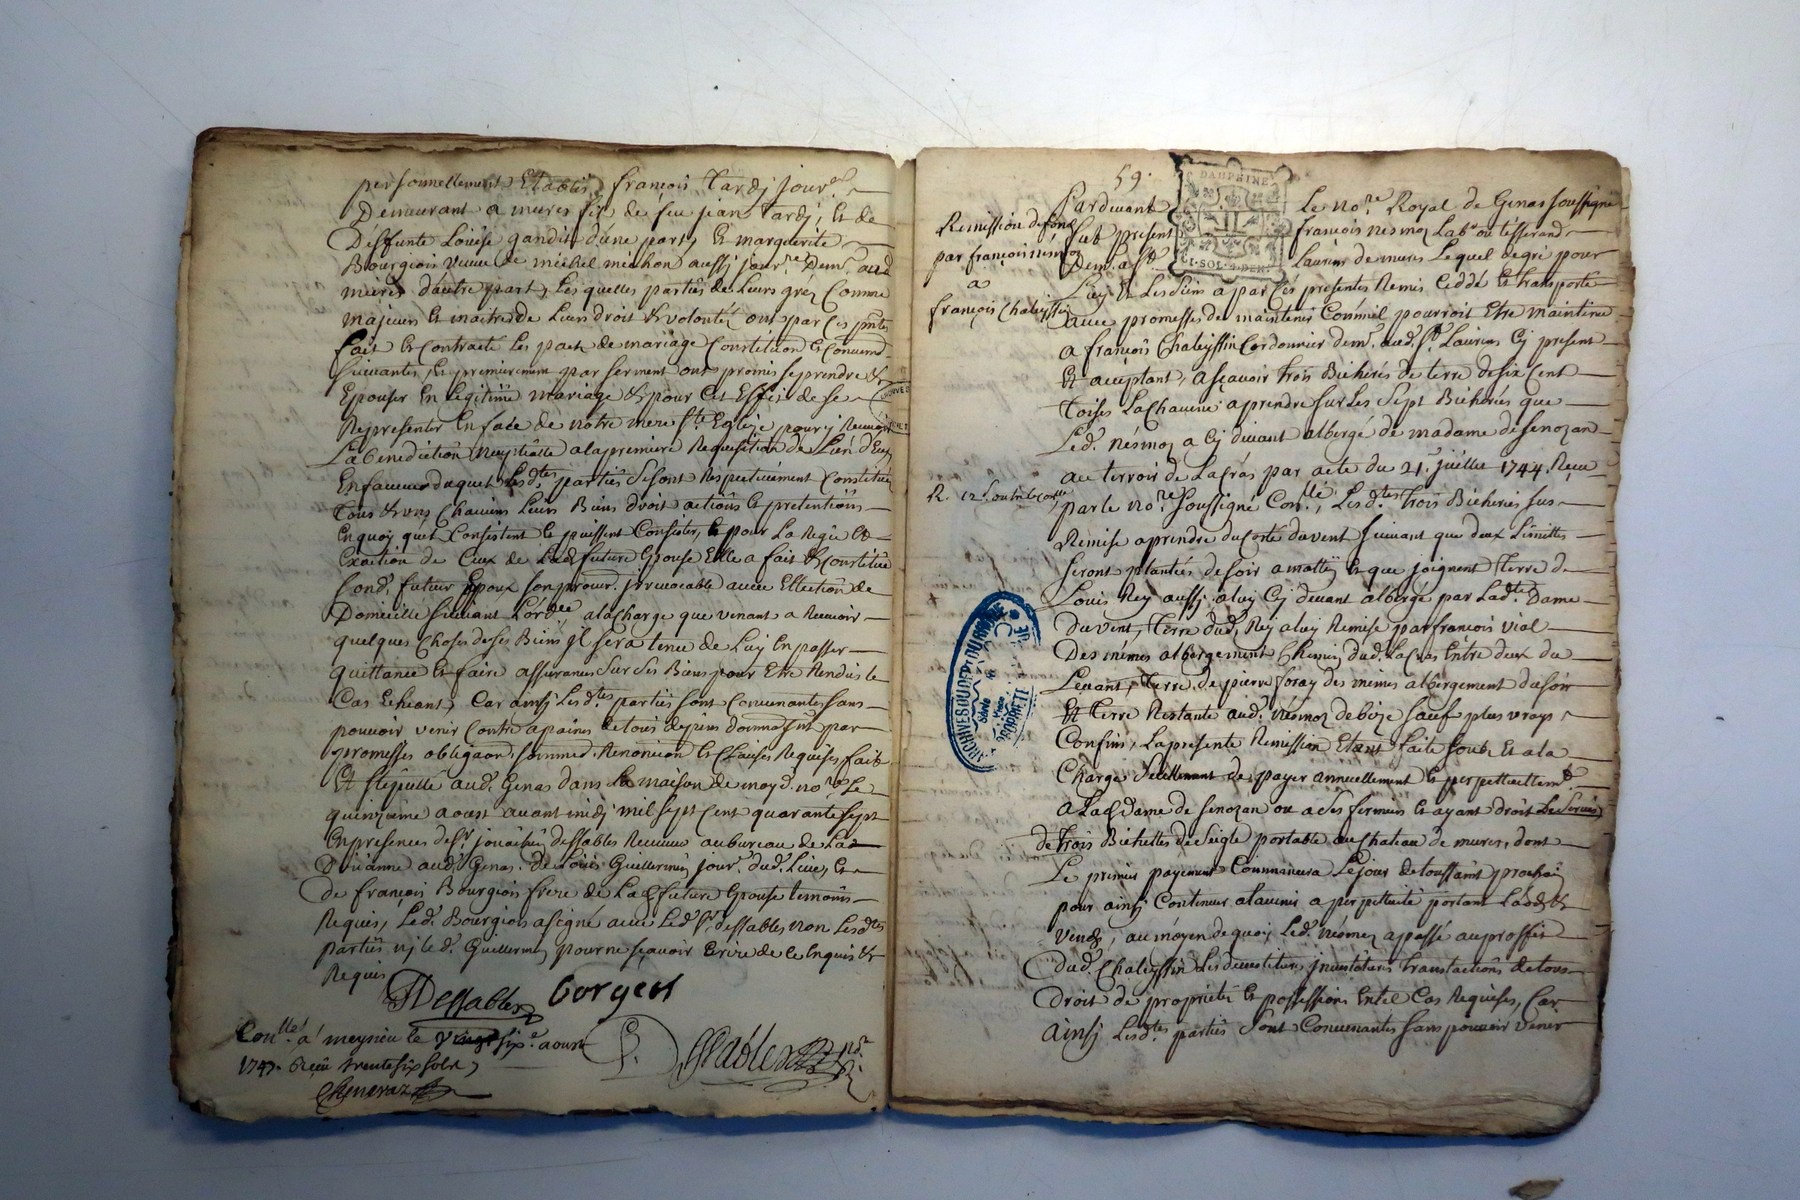 personnellement Etablis françois Tardj Jour.el
Demeurant a mures fils de feu jean Tardj, Et de
Deffunte Loüise gandit d'une part, Et marguerite
Bourgeois veuve de michel michon aussj jour.re Dem.t aud
mures d'autre part, Les quelles parties de Leurs grez Comme
majeurs Et maitres de Leurs droit & volontéz ont par Ces pntes
fait Et Contracté Les pactes de mariage Constitution Et Convend.
Suivantes, Et premierement par serment ont promis se prendre &
Epouser En Legitime mariage & pour Cet Effet de se
Representer En face de notre mere Ste Eglize pour y Recevoir
La benediction Nuptialle ala premiere Requisition de L'un d'Eux
En faveur duquel Lesd.tes parties se sont Respectivement Constitué
Tous & uns Chacuns Leurs Biens droit actions Et pretentions
En quoy quils Consistent Et puissent Consister, Et pour La Regie Et
Exaction de Ceux de Lad future Epouse Elle a fait & Constitué
Sond. futur Epoux son procur. irrevocable avec Ellection de
Domicille suivant L'ord.ce ala charge que venant a Recevoir
quelques Choses de ses Biens jl sera tenu de Luy En passer
Quittance Et faire assurances sur ses Biens pour Etre Rendus le
Cas Echeant, Car ainsj Lesd.tes parties sont Convenantes sans
pouvoir venir Contre a peines de tous depens dommages Int par
promesses obligaons. soummed. Renoncion Et Clauses Requises, fait
Et stipullé aud. Genas dans la maison de moyd. no.re Le
quinzieme aoust avant midj mil sept Cent quarante sept
En presences de Sr. joüachin dessables Receveur au bureau de La
Doüanne aud. Genas. De Loüis Guillermin jour.r dud. Lieu, Et
de françois Bourgeois frere de Lad future Epouse temoins
Requis, Led. Bourgeois a signé avec Led. Sr. dessables non Lesd.tes
parties nj le d. Guillermin pour ne sçavoir Ecrire de ce Enquis &
Requis
JDessables Borgeos
Con.llé a meyzieu le vingt six.e aoust
1747. Reçu trente six sols
Dessables no.re
59.
DAUPHINE
Remission de fond
par françois nésmoz
a
françois Chaleyssin
R. 12 s.
Pardevant Le No.re Royal de Genas soussigné
fut present françois nesmoz Lab.r ou tisserand
Dem.t a St Laurens de mures Lequel de gré pour
Luy Et Les siens a par Ces presentes Remis Ceddé Et transporté
avec promesses de maintenir Comme il pourroit Etre maintenu
a françois Chaleyssin Cordonnier dem.t aud. St. Laurens Cy present
Et acceptant, asçavoir trois Bicherés de terre de six Cent
Toises La Chacune a prendre sur Les sept Bicherés que
Led. nésmoz a Cj devant albergé de madame de senozan
au terroir de La Cras par acte du 21.e juillet 1744. Reçu
par le no.re soussigné Con.llé, Lesd.tes trois Bicherés sus
Remise a prendre du coté du vent suivant que deux Limittes
seront plantées de soir a matin Et que joignent Terre de
Louis Rey aussj a luy Cj devant albergé par Lad.te Dame
du vent, Terre dud. Rey a luy Remise par françois vial
Des mémes albergement Chemin dud. La Cras Entre deux du
Levant, Terre de pierre foray des mémes albergement du soir
Et Terre Restante aud. nésmoz de bize sauf plus vrays
Confins, La presente Remission Etant faite soub Et a la
Charge de payer annuellement Et perpetuellem.t
a Lad. Dame de senozan ou a ses fermiers Et ayant droit Le Servis
de trois Bichettes de seigle portable au Chateau de mures, dont
Le premier payement Commencera Le jour de toussaint prochain
pour ainsj Continuer a lavenir a perpettuité portant Lads &
vends, au moyen de quoy Led. nésmoz a passé au proffit
Dud. Chaleyssin Les devestitures jnvestitures transtactions de tous
droit de proprieté Et possessions En tel Cas Requises, Car
ainsj Lesd.tes parties sont Convenantes sans pouvoir venir
ARCHIVES DU DEPT DU RHONE